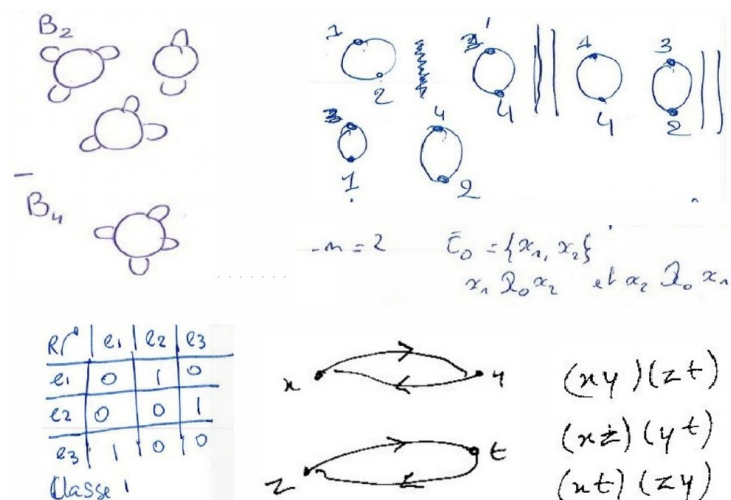 B₂
1 2 3 4 1 4 3 2
3 1 4 2
B₄
n = 2 E₀ = {x₁, x₂}
x₁ R₀ x₂ et x₂ R₀ x₁
e₁ e₂ e₃
e₁ 0 1 0
e₂ 0 0 1
e₃ 1 0 0
Classe 1
x y
z t
(xy)(zt)
(xz)(yt)
(xt)(zy)